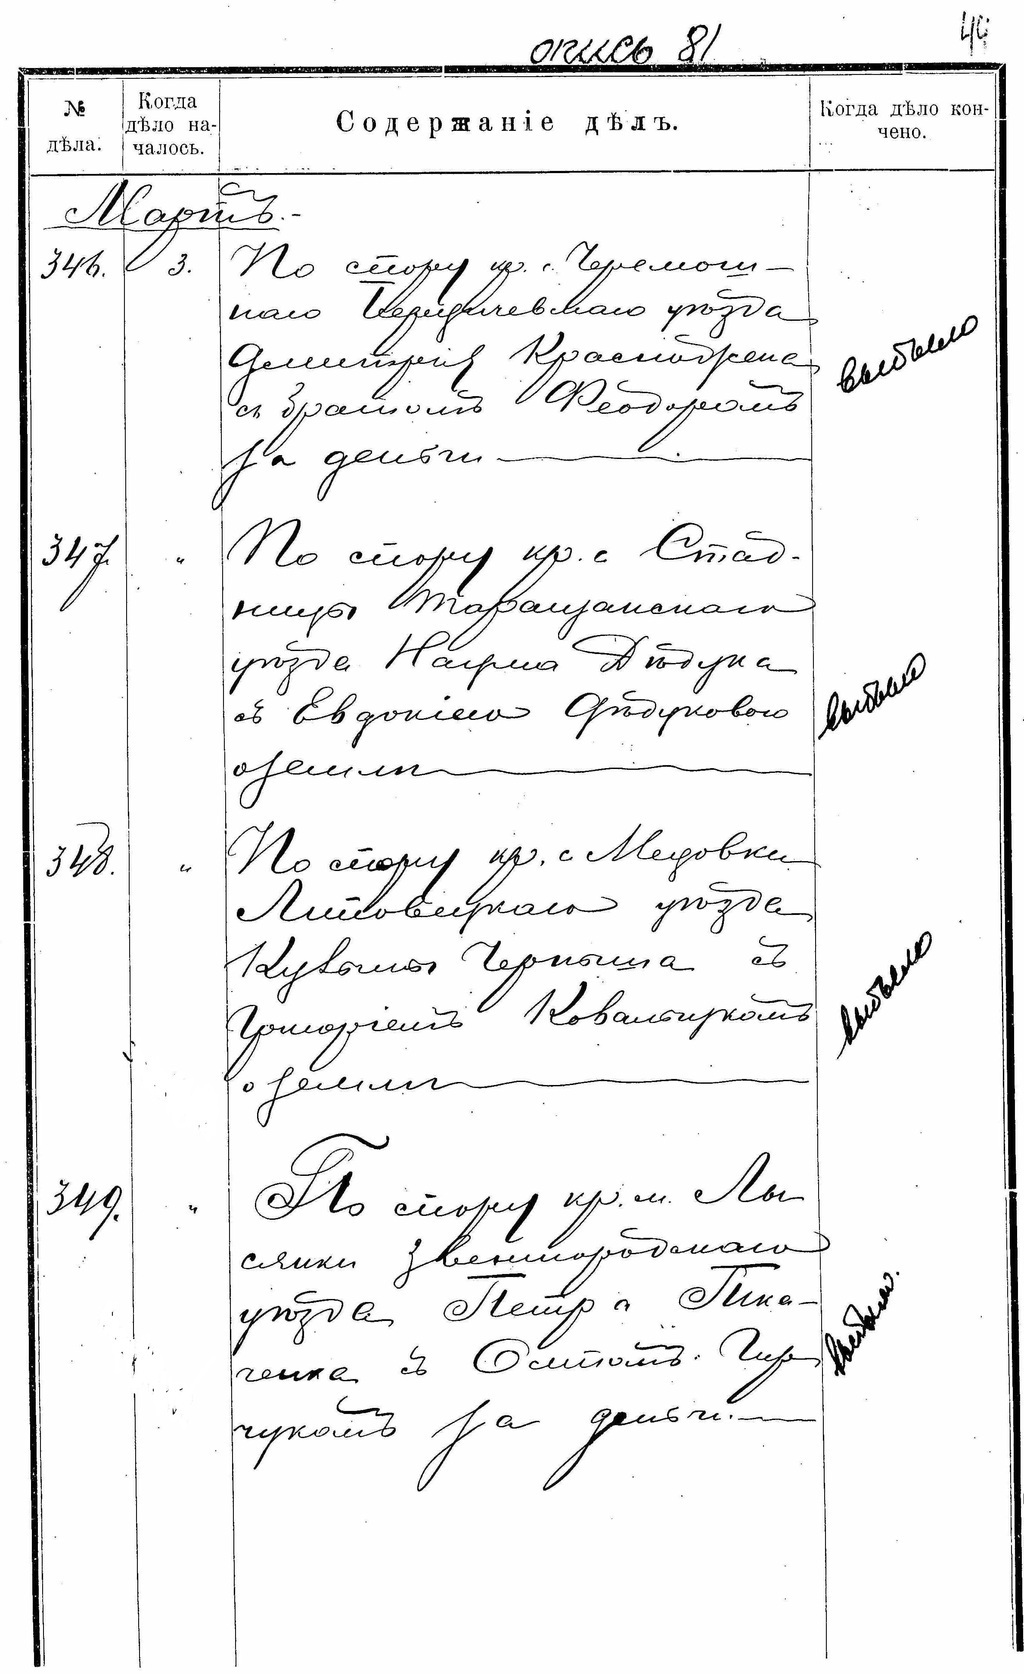 опись 81
44
№ дѣла.
Когда дѣло на-
чалось.
Содержаніе дѣлъ.
Когда дѣло кон-
чено.
Мартъ.-
346. 3. По спору кр. с. Черемош-
наго Бердичевскаго уѣзда
Дмитрія
съ братомъ Феодоромъ
за деньги
выбыло
347. " По спору кр. с Стад-
ницы Таращанскаго
уѣзда Наума Дѣдука
съ Евдокіею Дѣдуковою
о землѣ
выбыло
348. " По спору кр. с Медовки
Липовецкаго уѣзда
Кузьмы Черныша съ
Ковальчукомъ
о землѣ
выбыло
349. " По спору кр. м. Лы
сянки Звенигородскаго
уѣзда Петра Тка-
ченка съ
чукомъ за деньги.
выбыло.